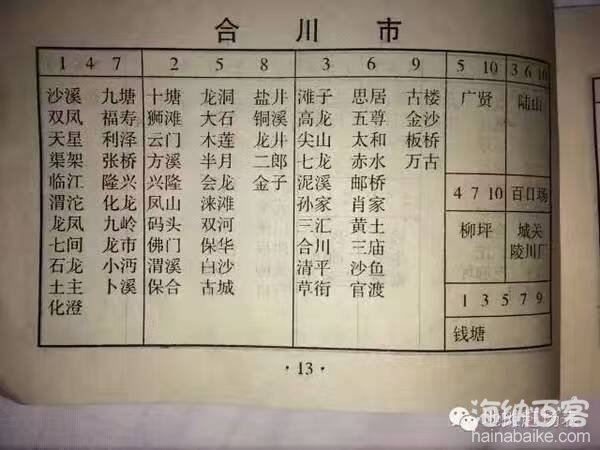 合川市
1 4 7 2 5 8 3 6 9 5 10 3 6 10
沙溪 九塘 十塘 龙洞 盐井 滩子 思居 古楼 广贤 陆山
双凤 福寿 狮滩 大石 铜溪 高龙 五尊 金沙
天星 利泽 云门 木莲 龙井 尖山 太和 板桥
渠架 张桥 方溪 半月 二郎 七龙 赤水 万古
临江 隆兴 兴隆 会龙 金子 泥溪 邮桥 4 7 10 百日场
渭沱 化龙 凤山 涞滩 孙家 肖家
龙凤 九岭 码头 双河 三汇 黄土 柳坪 城关
七间 龙市 佛门 保华 合川 三庙 陵川厂
石龙 小沔 渭溪 白沙 清平 沙鱼 1 3 5 7 9
土主 卜溪 保合 古城 草街 官渡
化澄 钱塘
·13·
海纳百客
hainabaike.com